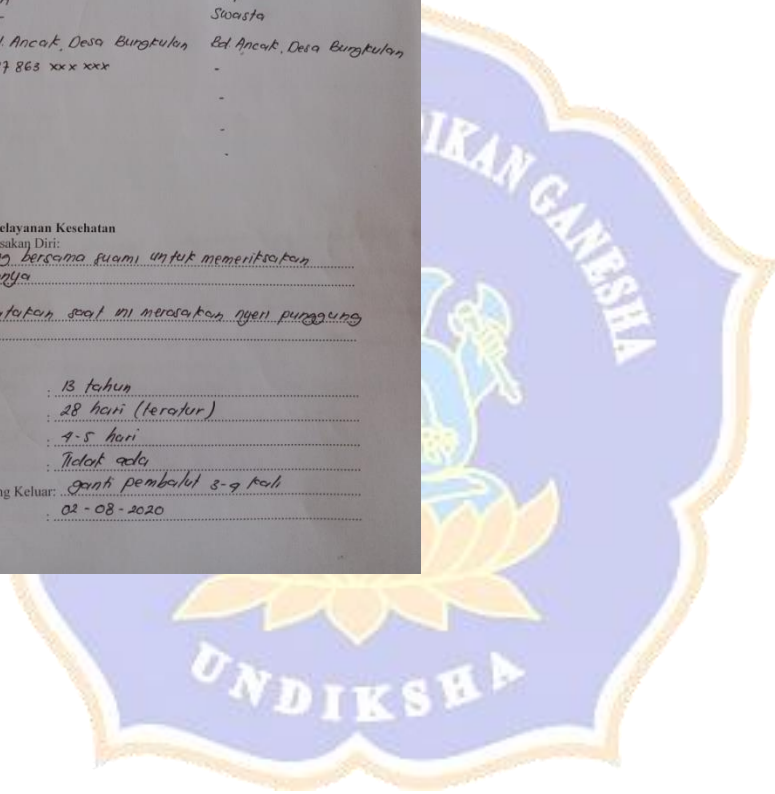 Swasta
. Ancak, Desa Bungkulan Bd. Ancak, Desa Bungkulan
7 863 xxx xxx -
-
-
-
elayanan Kesehatan
sakan Diri:
bersama suami untuk memeriksakan
nya
takan saat ini merasakan nyeri punggung
: 13 tahun
: 28 hari (teratur)
: 4-5 hari
: Tidak ada
ng Keluar: ganti pembalut 3-4 kali
: 02-08-2020
DIKAN GANESHA
UNDIKSHA